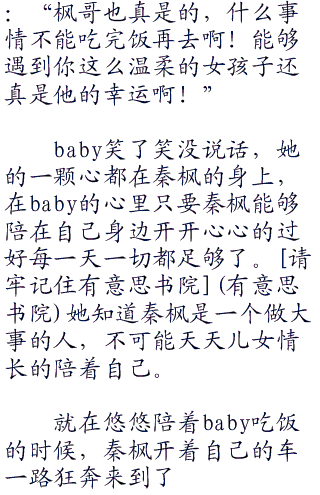 ：“枫哥也真是的，什么事
情不能吃完饭再去啊！能够
遇到你这么温柔的女孩子还
真是他的幸运啊！”
baby笑了笑没说话，她
的一颗心都在秦枫的身上，
在baby的心里只要秦枫能够
陪在自己身边开开心心的过
好每一天一切都足够了。[请
牢记住有意思书院](有意思
书院)她知道秦枫是一个做大
事的人，不可能天天儿女情
长的陪着自己。
就在悠悠陪着baby吃饭
的时候，秦枫开着自己的车
一路狂奔来到了